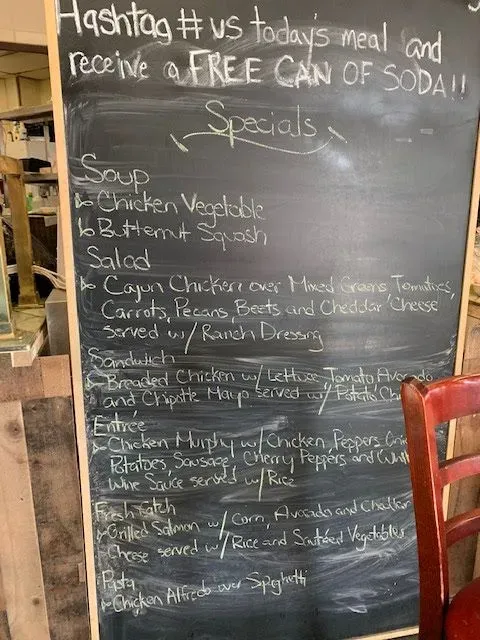 Hashtag # us today's meal and
receive a FREE CAN OF SODA!!
Specials
Soup
Chicken Vegetable
Butternut Squash
Salad
Cajun Chicken over Mixed Greens Tomatoes,
Carrots, Pecans, Beets and Cheddar Cheese
served w/ Ranch Dressing
Sandwich
Breaded Chicken w/ Lettuce, Tomato Avocado
and Chipotle Mayo served w/ Potato Ch
Entrée
Chicken Murphy w/ Chicken, Peppers Oni
Potatoes, Sausage, Cherry Peppers and Whit
Wine Sauce served w/ Rice
Fresh Catch
Grilled Salmon w/ Corn, Avocado and Cheddar
Cheese served w/ Rice and Sautéed Vegetables
Pasta
Chicken Alfredo over Spighetti